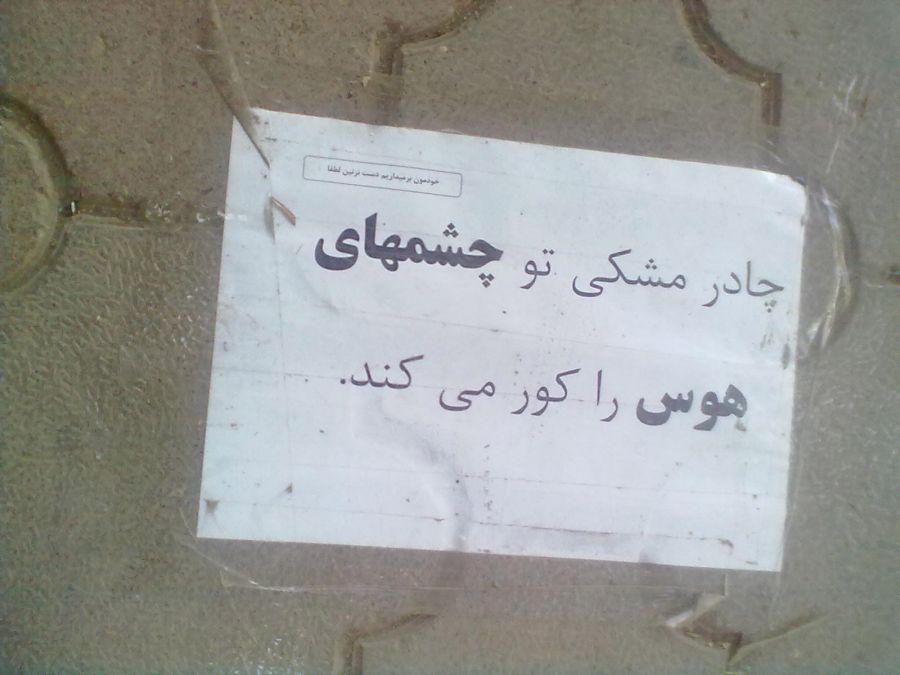 خودمون برمیداریم دست نزنین لطفا
چادر مشکی تو چشمهای
هوس را کور می کند.